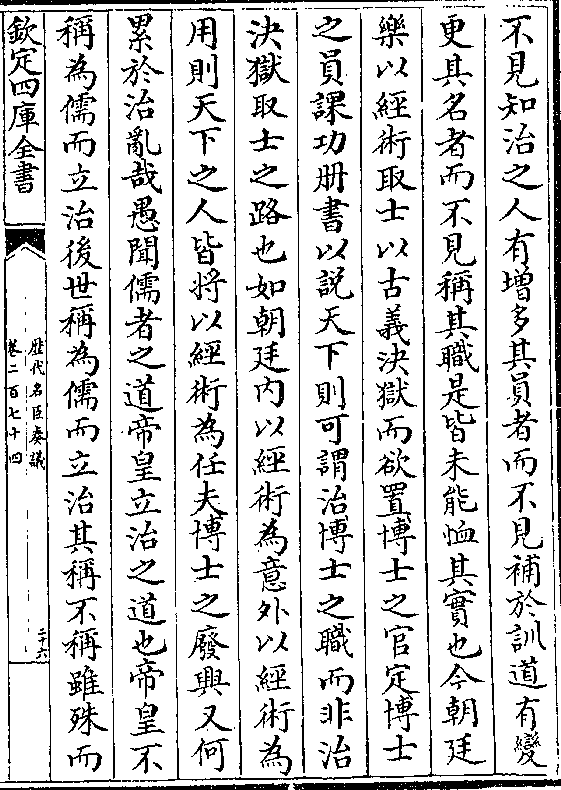 不見知治之人有増多其員者而不見補於訓道有變
更其名者而不見稱其職是皆未能恤其實也今朝廷
樂以經術取士以古義決獄而欲置博士之官定博士
之員課功册書以説天下則可謂治博士之職而非治
決獄取士之路也如朝廷内以經術為意外以經術為
用則天下之人皆将以經術為任夫博士之廢興又何
累於治亂哉愚聞儒者之道帝皇立治之道也帝皇不
稱為儒而立治後世稱為儒而立治其稱不稱雖殊而
欽定四庫全書
歴代名臣奏議
卷二百七十四
二十六